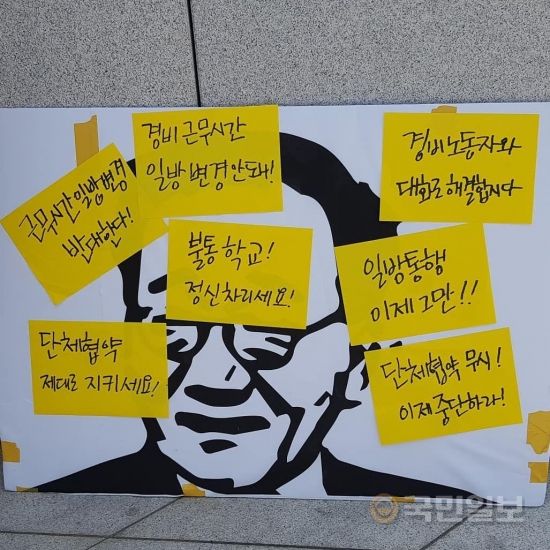 경비 근무시간
일방 변경 안돼!
경비노동자와
대화로 해결합시다
근무시간 일방변경
반대한다!
불통 학교!
정신차리세요!
일방통행
이제 그만!!
단체협약
제대로 지키세요!
단체협약 무시!
이제 중단하라!
국민일보